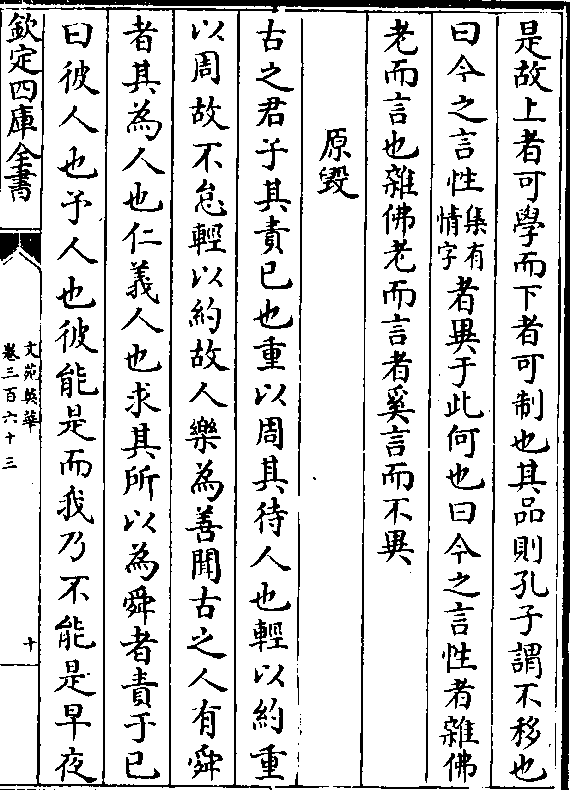 是故上者可學而下者可制也其品則孔子謂不移也
曰今之言性集有情字者異于此何也曰今之言性者雜佛
老而言也雜佛老而言者奚言而不異
原毀
古之君子其責已也重以周其待人也輕以約重
以周故不怠輕以約故人樂為善聞古之人有舜
者其為人也仁義人也求其所以為舜者責于已
曰彼人也予人也彼能是而我乃不能是早夜
欽定四庫全書
文苑英華
卷三百六十三
十